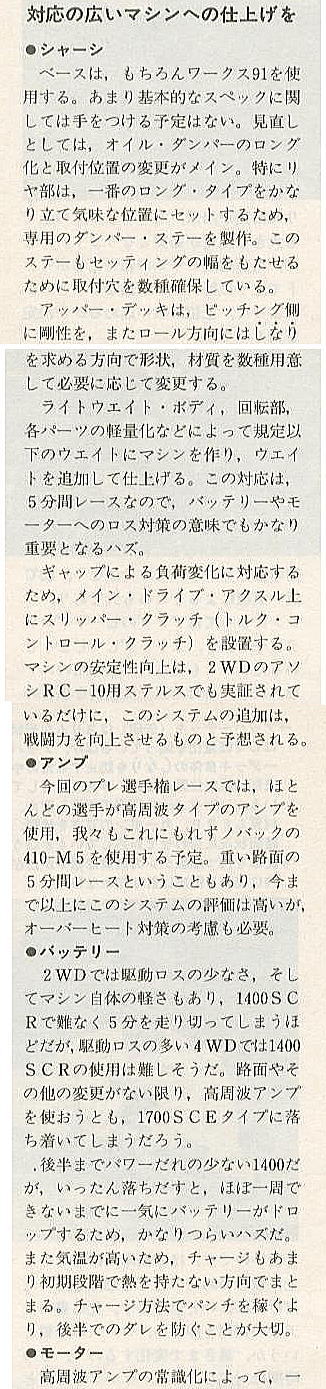 対応の広いマシンへの仕上げを
●シャーシ
　ベースは，もちろんワークス91を使
用する。あまり基本的なスペックに関
しては手をつける予定はない。見直し
としては，オイル・ダンパーのロング
化と取付位置の変更がメイン。特にリ
ヤ部は，一番のロング・タイプをかな
り立て気味な位置にセットするため，
専用のダンパー・ステーを製作。この
ステーもセッティングの幅をもたせる
ために取付穴を数種確保している。
　アッパー・デッキは，ピッチング側
に剛性を，またロール方向にはしなり
を求める方向で形状，材質を数種用意
して必要に応じて変更する。
　ライトウエイト・ボディ，回転部，
各パーツの軽量化などによって規定以
下のウエイトにマシンを作り，ウエイ
トを追加して仕上げる。この対応は，
５分間レースなので，バッテリーやモ
ーターへのロス対策の意味でもかなり
重要となるハズ。
　ギャップによる負荷変化に対応する
ため，メイン・ドライブ・アクスル上
にスリッパー・クラッチ（トルク・コ
ントロール・クラッチ）を設置する。
マシンの安定性向上は，２WDのアソ
シRC－10用ステルスでも実証されて
いるだけに，このシステムの追加は，
戦闘力を向上させるものと予想される。
●アンプ
　今回のプレ選手権レースでは，ほと
んどの選手が高周波タイプのアンプを
使用，我々もこれにもれずノバックの
410-M５を使用する予定。重い路面の
５分間レースということもあり，今ま
で以上にこのシステムの評価は高いが，
オーバーヒート対策の考慮も必要。
●バッテリー
　２WDでは駆動ロスの少なさ，そし
てマシン自体の軽さもあり，1400SC
Rで難なく５分を走り切ってしまうほ
どだが，駆動ロスの多い４WDでは1400
SCRの使用は難しそうだ。路面やそ
の他の変更がない限り，高周波アンプ
を使おうとも，1700SCEタイプに落
ち着いてしまうだろう。
　後半までパワーだれの少ない1400だ
が，いったん落ちだすと，ほぼ一周で
きないまでに一気にバッテリーがドロ
ップするため，かなりつらいハズだ。
また気温が高いため，チャージもあま
り初期段階で熱を持たない方向でまと
まる。チャージ方法でパンチを稼ぐよ
り，後半でのダレを防ぐことが大切。
●モーター
　高周波アンプの常識化によって，一